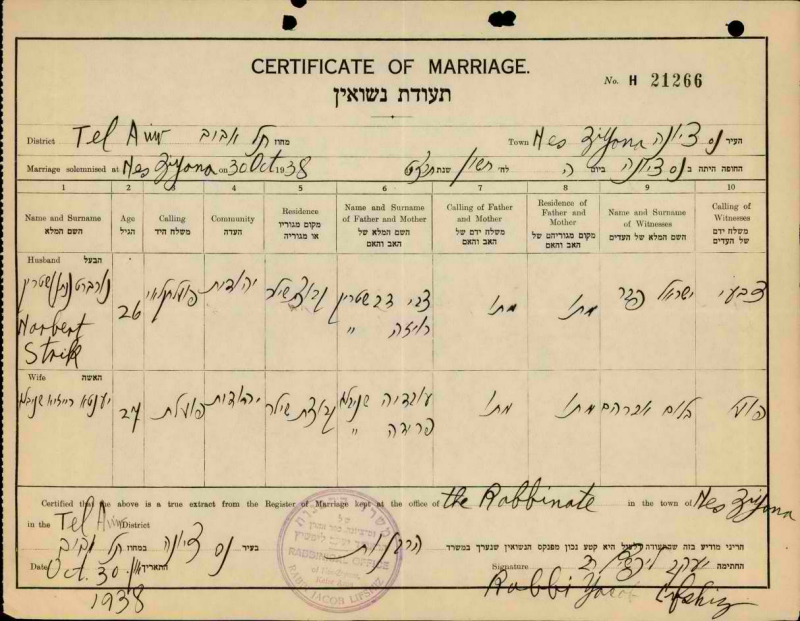 CERTIFICATE OF MARRIAGE.
No. H 21266
תעודת נשואין
District Tel Aviv תל אביב מחוז Town Nes Ziyona נס ציונה העיר
Marriage solemnised at Nes Ziyona on 30 Oct 1938 שנת חשון לח' ה ביום נס ציונה החופה היתה ב
1 2 3 4 5 6 7 8 9 10
Name and Surname Age Calling Community Residence Name and Surname of Father and Mother Calling of Father and Mother Residence of Father and Mother Name and Surname of Witnesses Calling of Witnesses
השם המלא הגיל משלח היד העדה מקום מגוריו או מגוריה השם המלא של האב והאם משלח ידם של האב והאם מקום מגוריהם של האב והאם השם המלא של העדים משלח ידם של העדים
Husband הבעל
נורברט 26 יהודית מתו מתו ישראל
רויזה "
Norbert
Wife האשה
27 פועלת יהודות עובדיה מתו מתו בלום אברהם פועל
פרידה "
Certified that the above is a true extract from the Register of Marriage kept at the office of the Rabbinate in the town of Nes Ziyona
in the Tel Aviv District
הריני מודיע בזה שהתעודה דלעיל היא קטע נכון מפנקס הנשואין שנערך במשרד הרבנות
בעיר נס ציונה במחוז תל אביב
Date Oct. 30 התאריך Signature יעקב ליפשיץ החתימה
1938 Rabbi Yacob Lifshiz
RABBINICAL OFFICE
RABBI JACOB LIFSHIZ